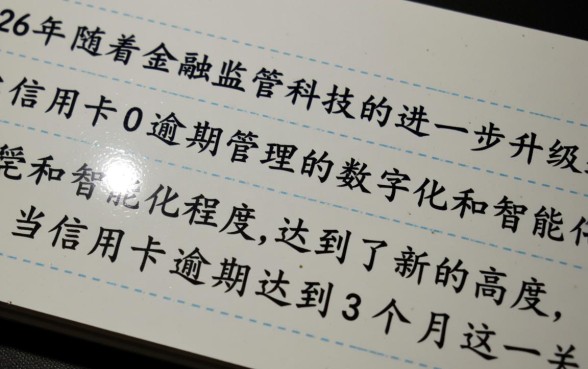 26年随着金融监管科技的进一步升级
信用卡0逾期管理的数字化和智能
和智能化程度,达到了新的高度,
当信用卡逾期达到3个月这一关